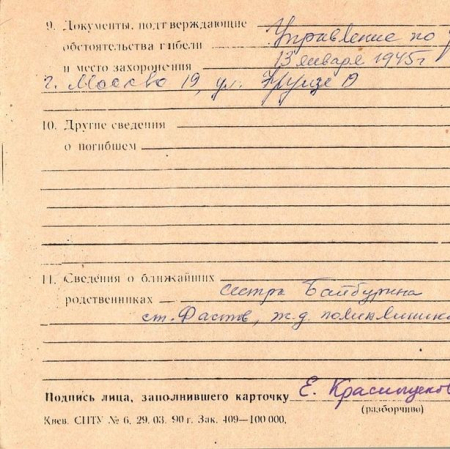 9. Документы, подтверждающие Управление по
обстоятельства гибели 13 января 1945 г
и место захоронения
г. Москва 19, ул. Фрунзе
10. Другие сведения
о погибшем
11. Сведения о ближайших
родственниках сестра Байбурина
ст. Фастов, ж.д.
Подпись лица, заполнившего карточку Е.
(разборчиво)
Киев. СПТУ № 6, 29. 03. 90 г. Зак. 409—100 000.